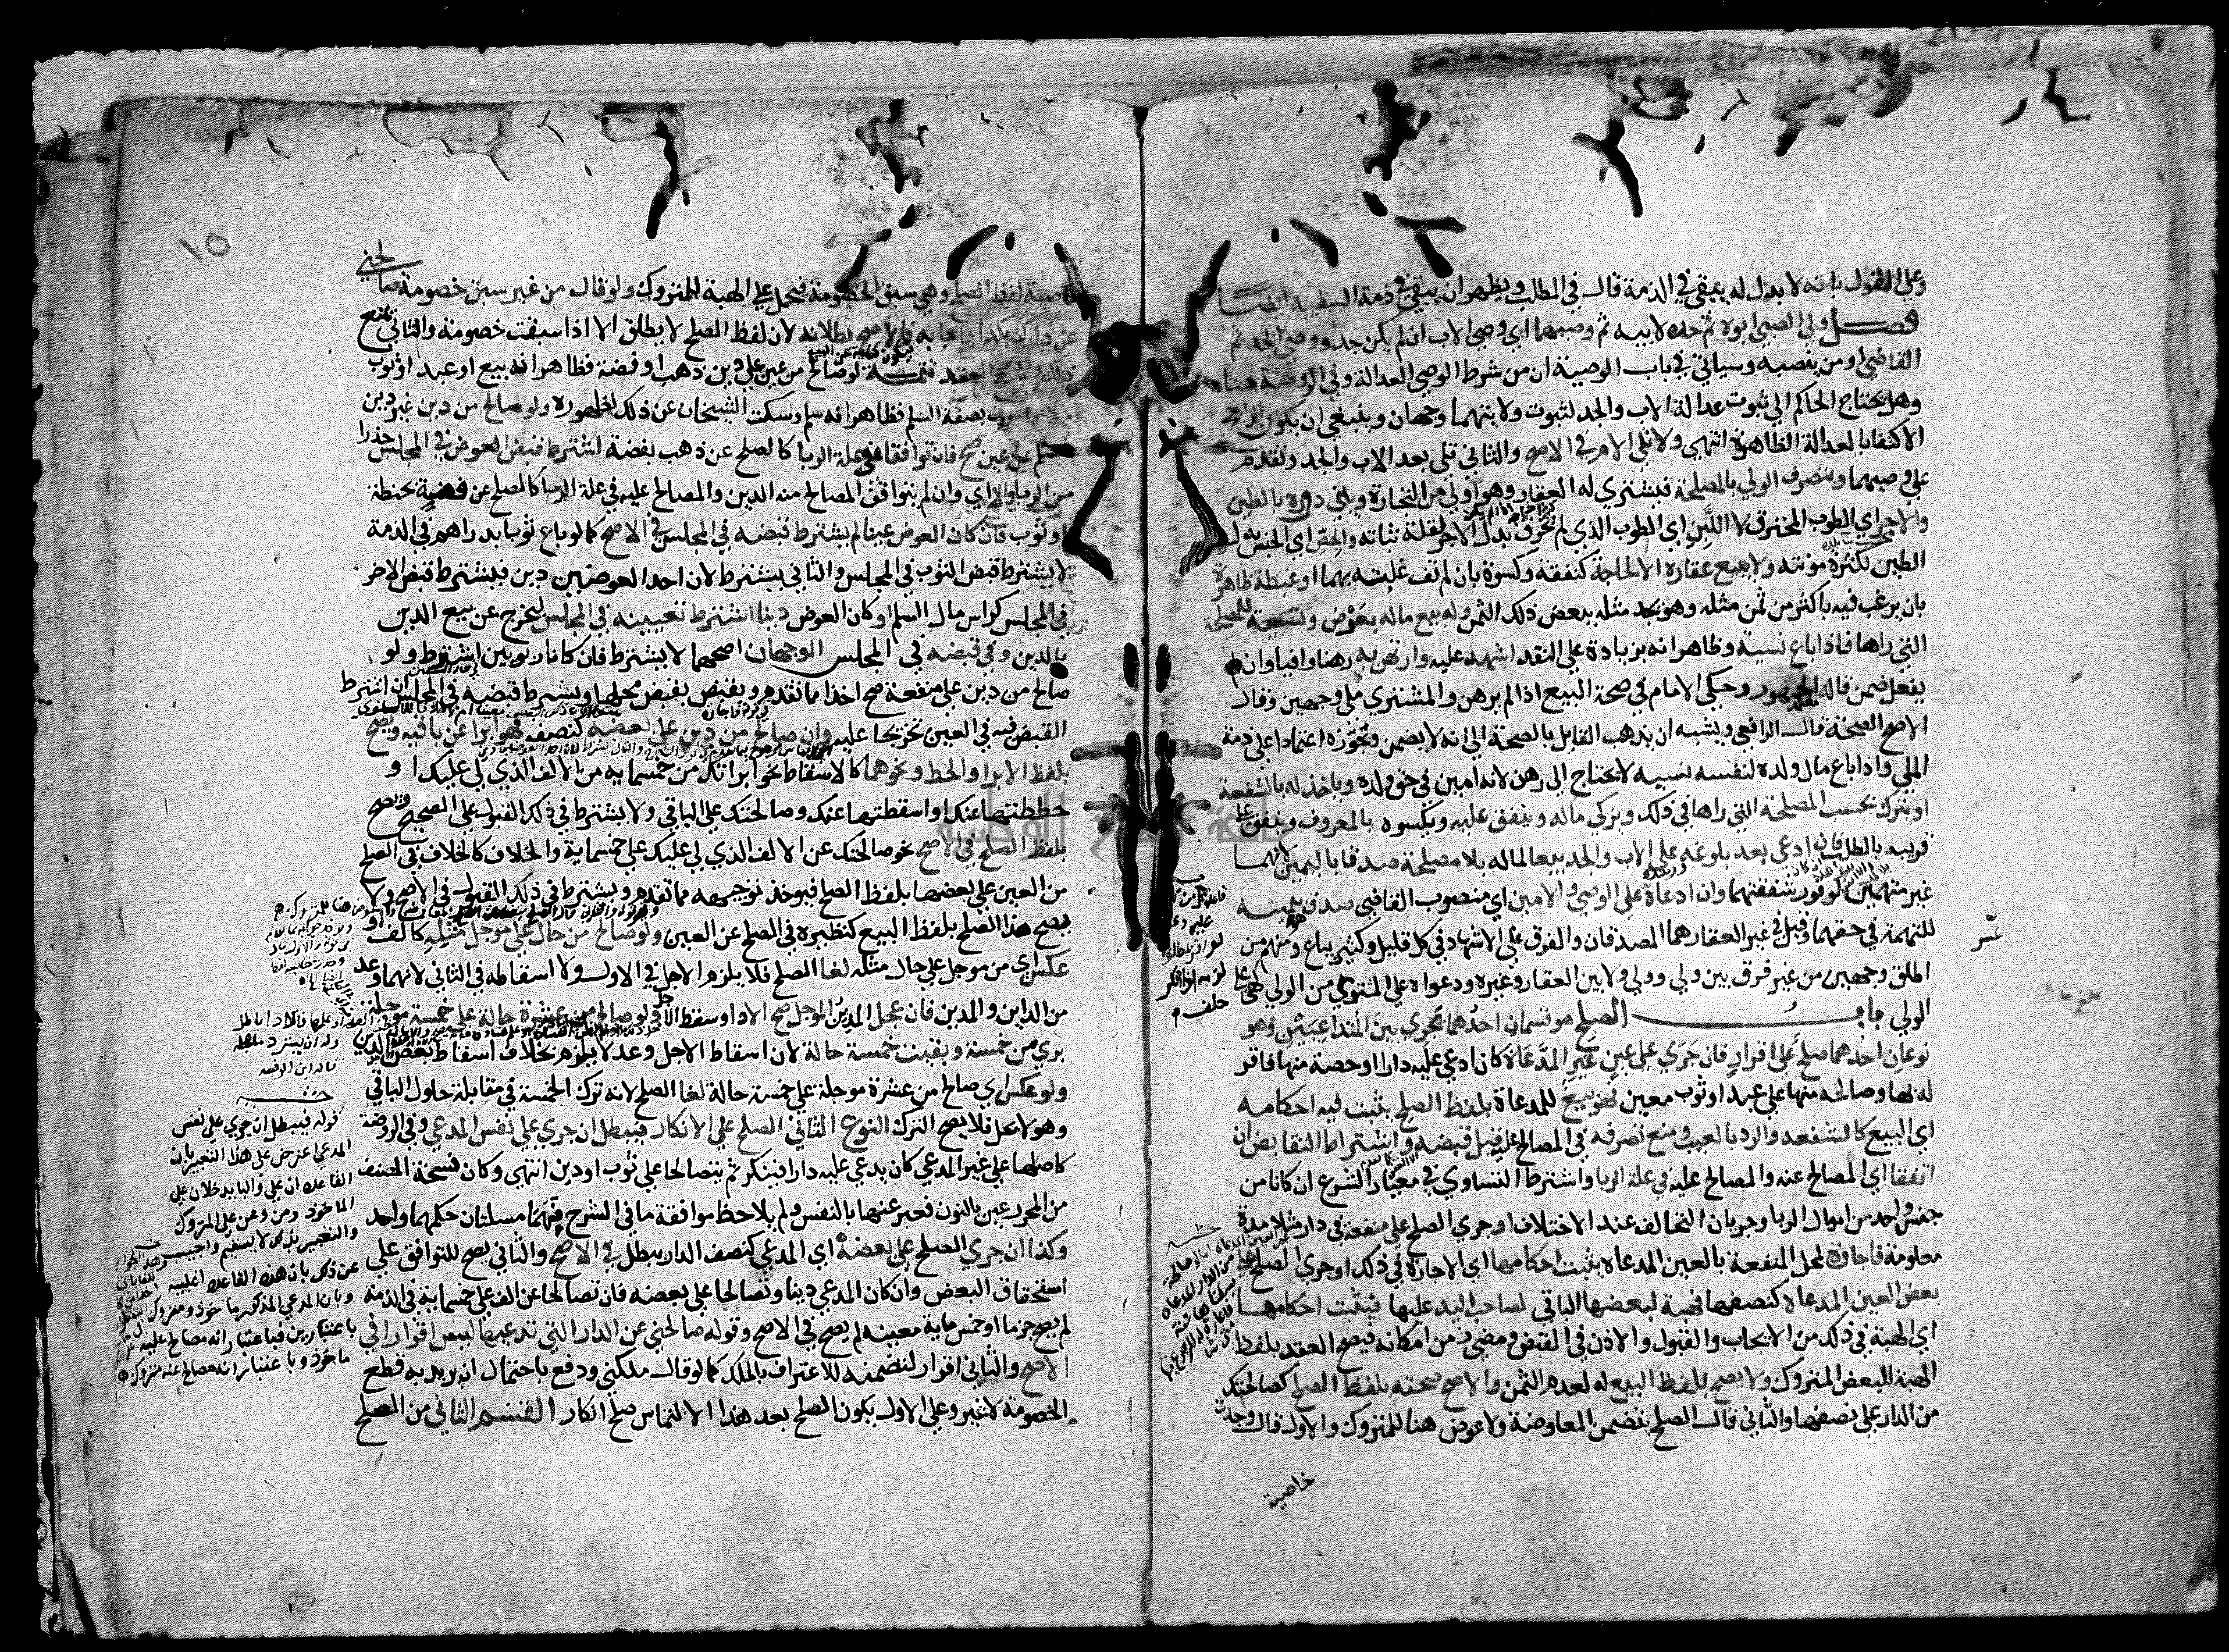 وعلى القول بانه لا بدل له يبقى في الذمة قال في المطلب ويظهر ان يبقى في ذمة السفيه ايضا
فصل ولي الصبي ابوه ثم جده لابيه ثم وصيهما اي وصي الاب ان لم يكن جد ووصي الجد ثم
القاضي او من ينصبه وسياتي في باب الوصية ان من شرط الوصي العدالة وفي الروضة هنا
وهل يحتاج الحاكم الي ثبوت عدالة الاب والجد لثبوت ولايتهما وجهان وينبغي ان يكون الراجح
الاكتفا بالعدالة الظاهرة انتهى ولا تلي الام في الاصح والثاني تلي بعد الاب والجد وتقدم
علي وصيهما ويتصرف الولي بالمصلحة فيشتري له العقار وهو اولى من التجارة ويبني دوره بالطين
والاجر اي الطوب المحترق لا اللبن اي الطوب الذي لم يحرق بدل الاجر لقلة ثباته والجص اي الجبس بدل
الطين لكثرة مونته ولا يبيع عقاره الا لحاجة كنفقة وكسوة بان لم تف غلته بهما او غبطة ظاهرة
بان يرغب فيه باكثر من ثمن مثله وهو يجد مثله ببعض ذلك الثمن وله بيع ماله بعرض ونسيئة للمصلحة
التي راها فاذا باع نسية وظاهر انه بزيادة علي النقد اشهد عليه وارتهن به رهنا وافيا وان لم
يفعل ضمن قاله الجمهور وحكي الامام في صحة البيع اذا لم يرهن والمشتري ملي وجهين وقال
الاصح الصحة قال الرافعي ويشبه ان يذهب القايل بالصحة الي انه لا يضمن وتجوزه اعتمادا علي ذمة
الملي واذا باع مال ولده لنفسه نسيه لا يحتاج الى رهن لانه امين في حق ولده وياخذ له بالشفعة
او يترك بحسب المصلحة التي راها في ذلك ويزكي ماله وينفق عليه ويكسوه بالمعروف وينفق علي
قريبه بالطلب فان ادعى بعد بلوغه علي الاب والجد بيعا لماله بلا مصلحة صدقا باليمين لانهما
غير متهمين لوفور شفقتهما وان ادعاه علي الوصي والامين اي منصوب القاضي صدق بيمينه
للتهمة في حقهما وقيل في غير العقار هما المصدقان والفرق علي الاشهاد في كل قليل وكثير يباع ومنهم من
اطلق وجهين من غير فرق بين ولي وولي ولا بين العقار وغيره ودعواه علي المشتري من الولي كهي علي
الولي باب الصلح هو قسمان احدهما يجري بين المتداعيين وهو
نوعان احدهما صلح على اقرار فان جرى على عين غير المدعاة كان ادعي عليه دارا او حصة منها فاقر
له بها وصالحه منها علي عبد او ثوب معين فهو بيع للمدعاة بلفظ الصلح يثبت فيه احكامه
اي البيع كالشفعه والرد بالعيب ومنع تصرفه في المصالح عليه قبل قبضه واشتراط التقابض ان
اتفقا اي المصالح عنه والمصالح عليه في علة الربا واشتراط التساوي في معيار الشرع ان كانا من
جنس واحد من اموال الربا وجريان التحالف عند الاختلاف او جري الصلح علي منفعة في دار مثلا مدة
معلومة فاجارة لمحل المنفعة بالعين المدعاه يثبت احكامها اي الاجارة في ذلك او جري الصلح علي
بعض العين المدعاه كنصفها فهبة لبعضها الباقي لصاحب اليد عليها فيثبت احكامها
اي الهبة في ذلك من الايجاب والقبول والاذن في القبض ومضي زمن امكانه فيصح العقد بلفظ
الهبة للبعض المتروك ولا يصح بلفظ البيع له لعدم الثمن والاصح صحته بلفظ الصلح كصالحتك
من الدار علي نصفها والثاني قال الصلح يتضمن المعاوضة ولا عوض هنا للمتروك والاول قال وجدت
خاصية
١٥
خاصية لفظ الصلح وهي سبق الخصومة فيحمل علي الهبة للمتروك ولو قال من غير سبق خصومة صالحني
عن دارك بكذا فاجابه فالاصح بطلانه لان لفظ الصلح لا يطلق الا اذا سبقت خصومة والثاني يمنع
ذلك العقد تتمة لو صالح من عين علي دين ذهب او فضة فظاهر انه بيع او عبد او ثوب
بصفة السلم فظاهر انه سلم وسكت الشيخان عن ذلك لظهوره ولو صالح من دين غير دين
علي عين صح فان توافقا في علة الربا كالصلح عن ذهب بفضة اشترط قبض العوض في المجلس حذرا
من الربا والا اي وان لم يتوافق المصالح منه الدين والمصالح عليه في علة الربا كالصلح عن فضة بحنطة
او ثوب فان كان العوض عينا لم يشترط قبضه في المجلس في الاصح كما لو باع ثوبا بدراهم في الذمة
لا يشترط قبض الثوب في المجلس والثاني يشترط لان احد العوضين دين فيشترط قبض الاخر
في المجلس كراس مال السلم او كان العوض دينا اشترط تعيينه في المجلس ليخرج عن بيع الدين
بالدين وفي قبضه في المجلس الوجهان اصحهما لا يشترط فان كانا ربويين اشترط ولو
صالح من دين علي منفعة صح اخذا مما تقدم ويقبض بقبض محلها ويشترط قبضه في المجلس ان اشترط
القبض فيه في العين تخريجا عليه وان صالح من دين علي بعضه كنصفه فهو ابرا عن باقيه ويصح
بلفظ الابرا والحط ونحوهما كالاسقاط نحو ابراتك من خمسمايه من الالف الذي لي عليك او
حططتها عنك او اسقطتها عنك وصالحتك علي الباقي ولا يشترط في ذلك القبول علي الصحيح ويصح
بلفظ الصلح في الاصح نحو صالحتك عن الالف الذي لي عليك علي خمسماية والخلاف كالخلاف في الصلح
من العين علي بعضها بلفظ الصلح فيوخذ توجيهه مما تقدم ويشترط في ذلك القبول في الاصح ولا
يصح هذا الصلح بلفظ البيع كنظيره في الصلح عن العين ولو صالح من حال علي موجل مثله كالف او
عكس اي من موجل علي حال مثله لغا الصلح فلا يلزم الاجل في الاول ولا اسقاطه في الثاني لانهما وعد
من الداين والمدين فان عجل المدين الموجل صح الادا وسقط الاجل ولو صالح من عشرة حالة علي خمسة موجلة
بري من خمسة وبقيت خمسة حالة لان اسقاط الاجل وعد لا يلزم بخلاف اسقاط بعض الدين
ولو عكس اي صالح من عشرة موجلة علي خمسة حالة لغا الصلح لانه ترك الخمسة في مقابلة حلول الباقي
وهو لا يحل فلا يصح الترك النوع الثاني الصلح علي الانكار فيبطل ان جري علي نفس المدعي وفي الروضة
كاصلها علي غير المدعي كان يدعي عليه دارا فينكر ثم يتصالحا علي ثوب او دين انتهي وكان نسخة المصنف
من المحرر عين بالنون فعبر عنها بالنفس ولم يلاحظ موافقة ما في الشرح فهما مسلتان حكمهما واحد
وكذا ان جري الصلح علي بعضه اي المدعي كنصف الدار يبطل في الاصح والثاني يصح للتوافق علي
استحقاق البعض وان كان المدعي دينا وتصالحا علي بعضه فان تصالحا عن الف علي خمسماية في الذمة
لم يصح جزما او خمس ماية معينة لم يصح في الاصح وقوله صالحني عن الدار التي تدعيها ليس اقرارا في
الاصح والثاني اقرار لتضمنه للاعتراف بالملك كما لو قال ملكني ودفع باحتمال ان يريد به قطع
الخصومة لا غير وعلي الاول يكون الصلح بعد هذا الالتماس صلح انكار القسم الثاني من الصلح
قوله فيبطل ان جري علي نفس
المدعي اعترض علي هذا التعبير بان
القاعدة ان علي والبا يدخلان علي
الماخوذ ومن وعن علي المتروك
والتعبير بذلك لا يستقيم واجيب
عن ذلك بان هذه القاعدة اغلبيه
وبان المدعي المذكور ماخوذ ومتروك
باعتبارين فباعتبار انه مصالح عليه
ماخوذ وباعتبار انه مصالح عنه متروك